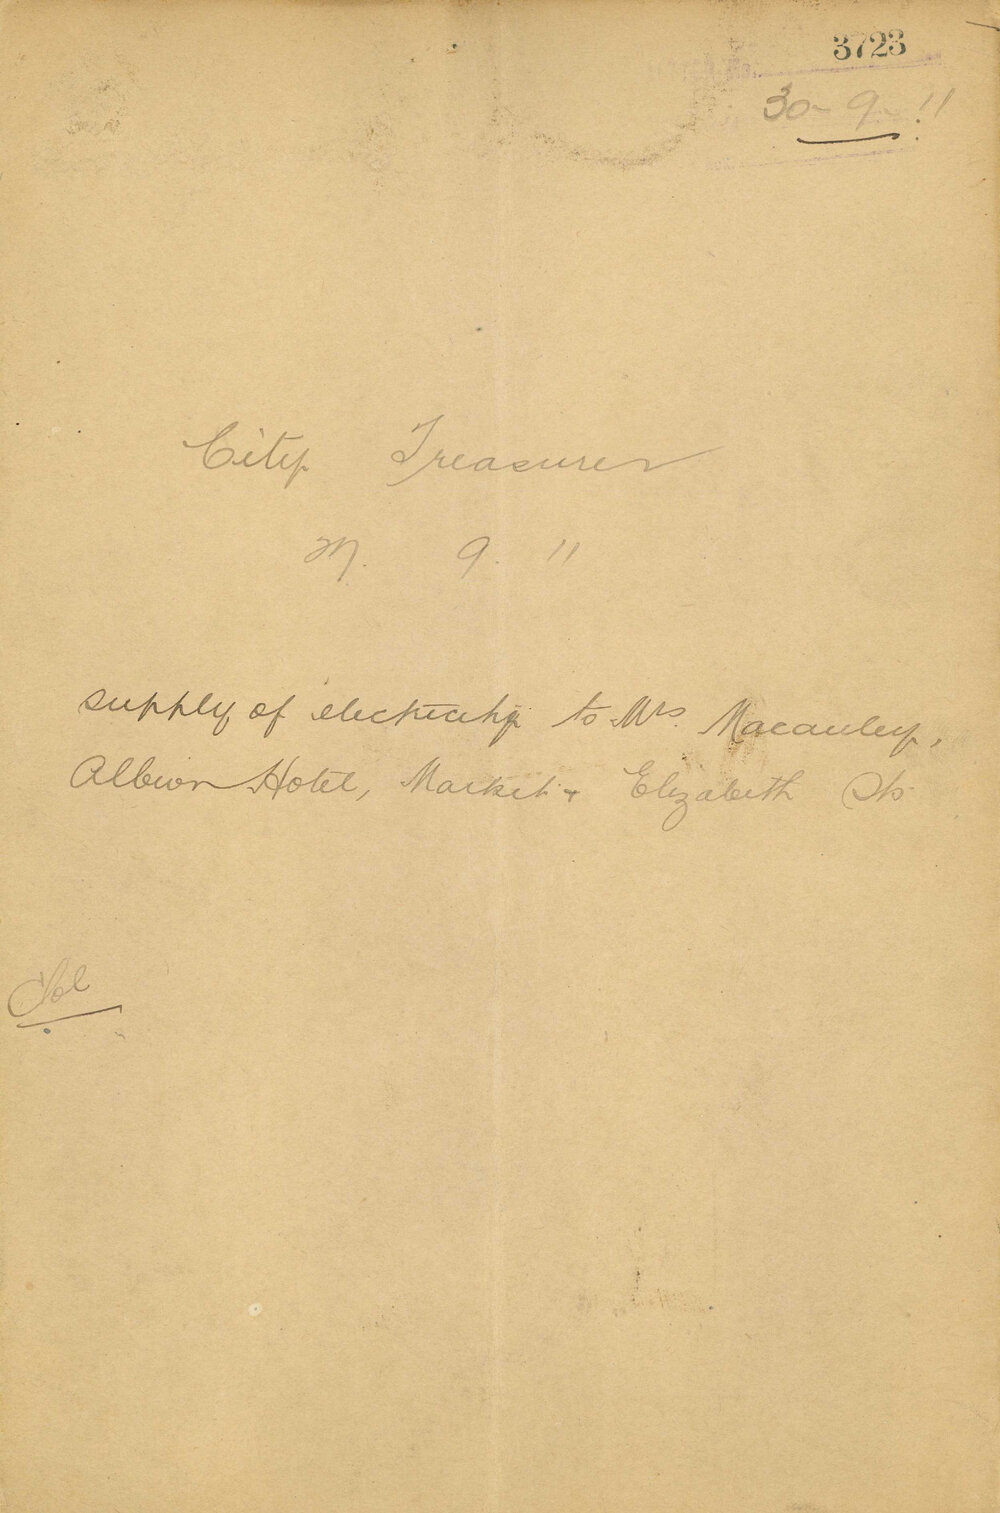 3723
30-9-11
City Treasurer
M. 9. 11
supply of electricity to Mrs. Macauley,
Albion Hotel, Market & Elizabeth Sts